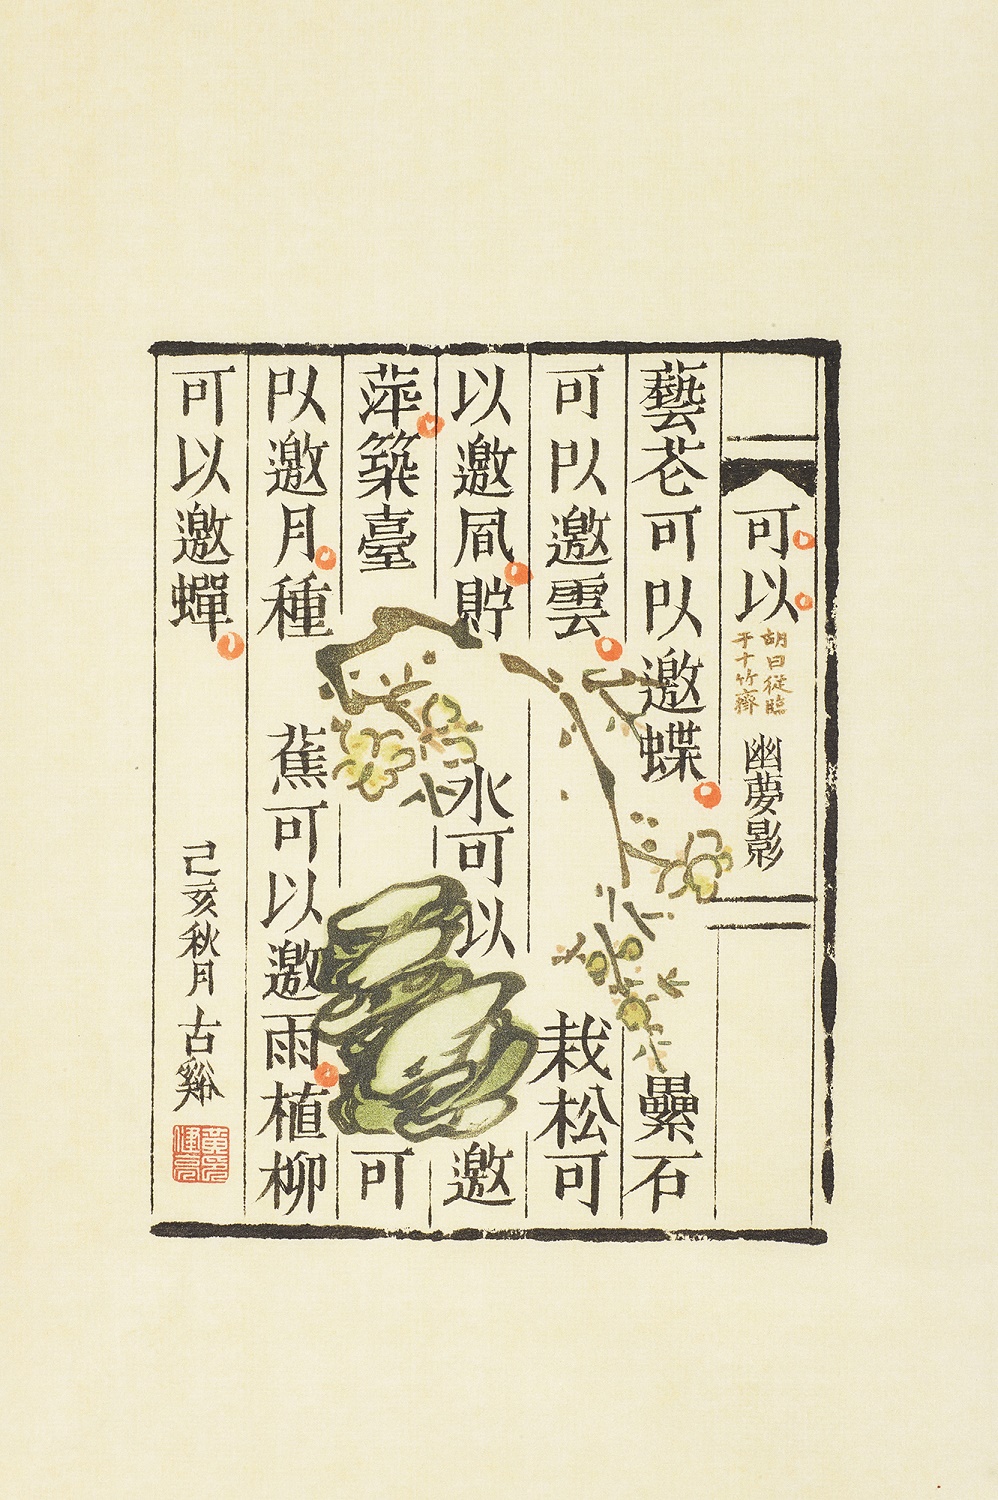 可以
胡曰從臨
于十竹齋
幽夢影
藝芲可以邀蝶纍石
可以邀雲栽松可
以邀凮貯水可以邀
萍築臺可
以邀月種蕉可以邀雨植柳
可以邀蟬
己亥秋月古谿